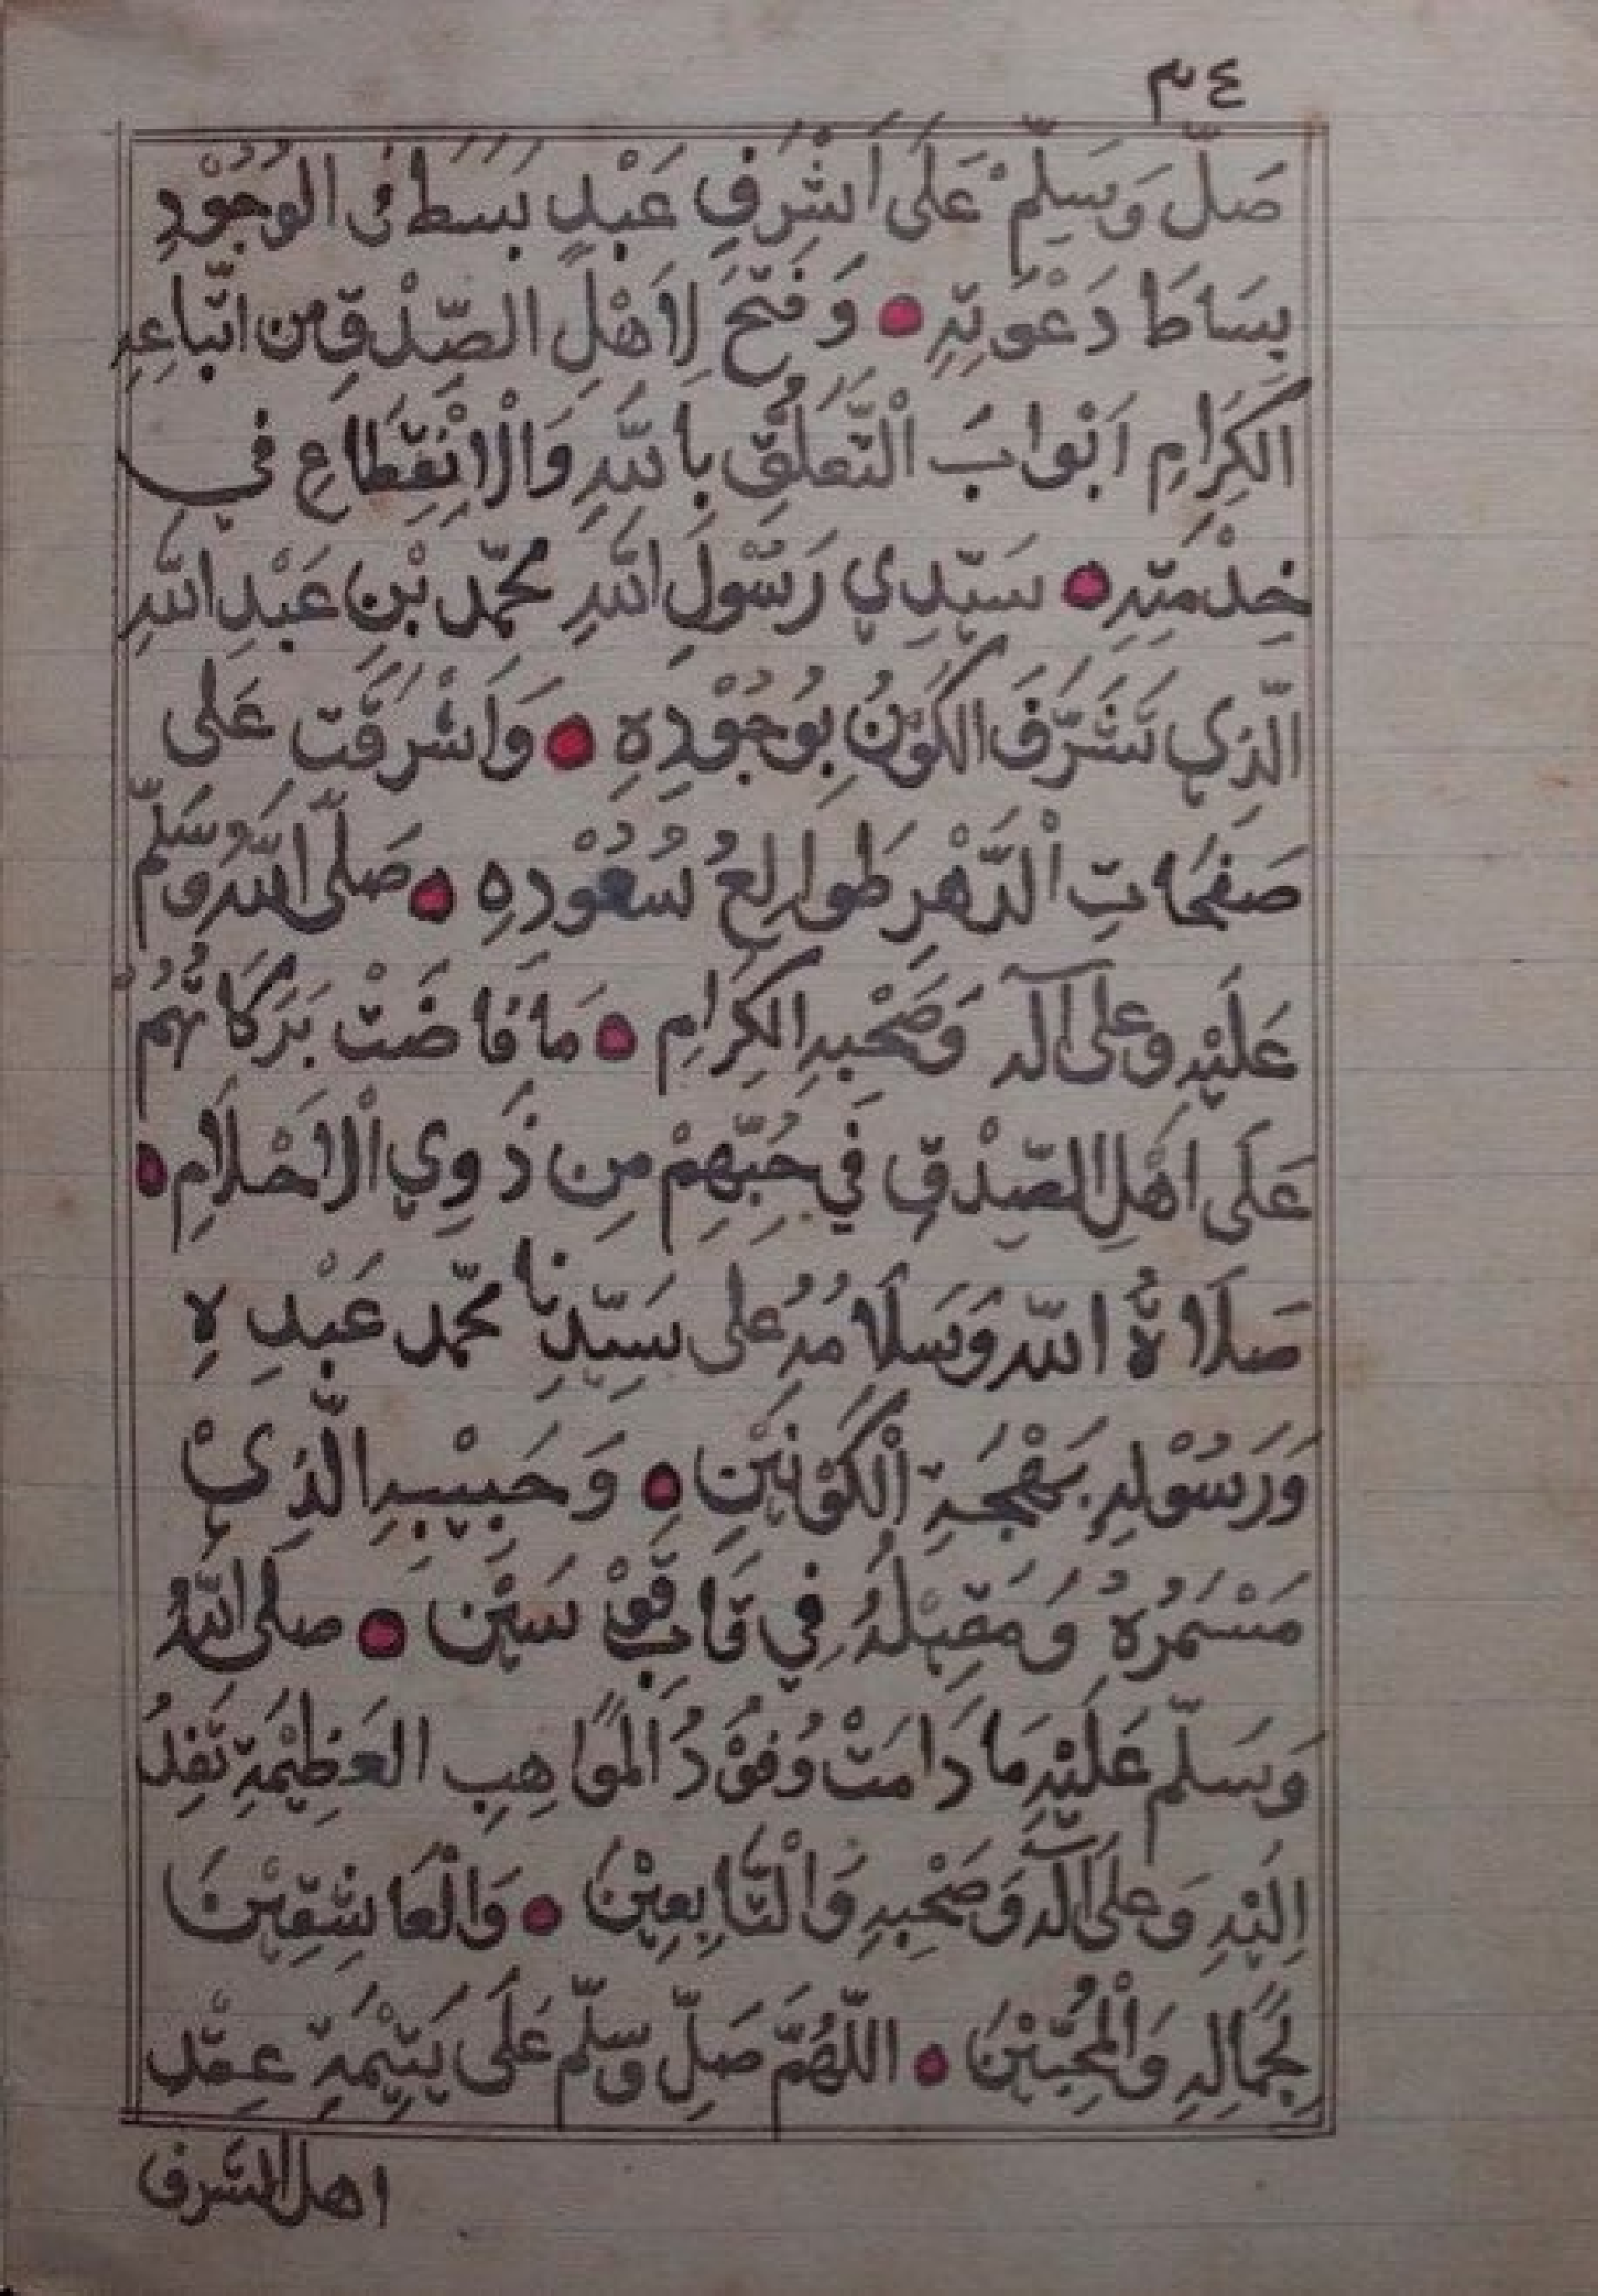 ٤٣
صَلِّ وَسَلِّمْ عَلَى أَشْرَفِ عَبْدٍ بَسَطَ فِى الْوُجُوْدِ
بِسَاطَ دَعْوَتِهِ ● وَفَتَحَ لِاَهْلِ الصِّدْقِ مِن اتِّبَاعِهِ
الْكِرَامِ اَبْوَابَ الْتَّعَلُّقِ بِاللّٰهِ وَالْاِنْقِطَاعِ في
خِدْمَتِهِ ● سَيِّدِي رَسُوْلِ اللّٰهِ مُحَمَّد بْنِ عَبْدِ اللّٰهِ
الَّذِي تَشَرَّفَ الكَوْنُ بِوُجُوْدِهِ ● وَاَشْرَقَت عَلَى
صَفَحَاتِ الْدَّهْرِ طَوَالِعُ سُعُوْدِهِ ● صَلَّى اللّٰهُ وَسَلَّمَ
عَلَيْهِ وعلى آله وَصَحْبِهِ الكِرَامِ ● مَا فَاضَتْ بَرَكَاتُهُمْ
عَلَى اَهْلِ الصِّدْقِ فِي حُبِّهِمْ مِن ذَوِي الْاَحْلَامِ ●
صَلَاةُ اللّٰه وَسَلَامُهُ على سَيِّدِنَا محمّد عَبْدِهِ
وَرَسُوْلِهِ بَهْجَةِ الْكَوْنَيْنِ ● وَحَبِيْبِهِ الَّذِىْ
مَسْمَرُهُ وَمَقِيْلُهُ فِي قَابَ قَوْسَيْن ● صلى اللّٰهُ
وَسَلَّم عَلَيْهِ مَا دَامَتْ وُفُوْدُ الْمَوَاهِبِ العَظِيْمَةِ تَفِدُ
اِلَيْهِ وَعلى آلِه وَصَحْبِهِ وَالْتَّابِعِيْنَ ● وَالْعَاشِقِيْنَ
لِجَمَالِهِ وَالْمُحِبِّيْنَ ● اللّهُمَّ صَلِّ وسلّم عَلَى يَتِيْمَةِ عِقْدِ
اهل الشرف